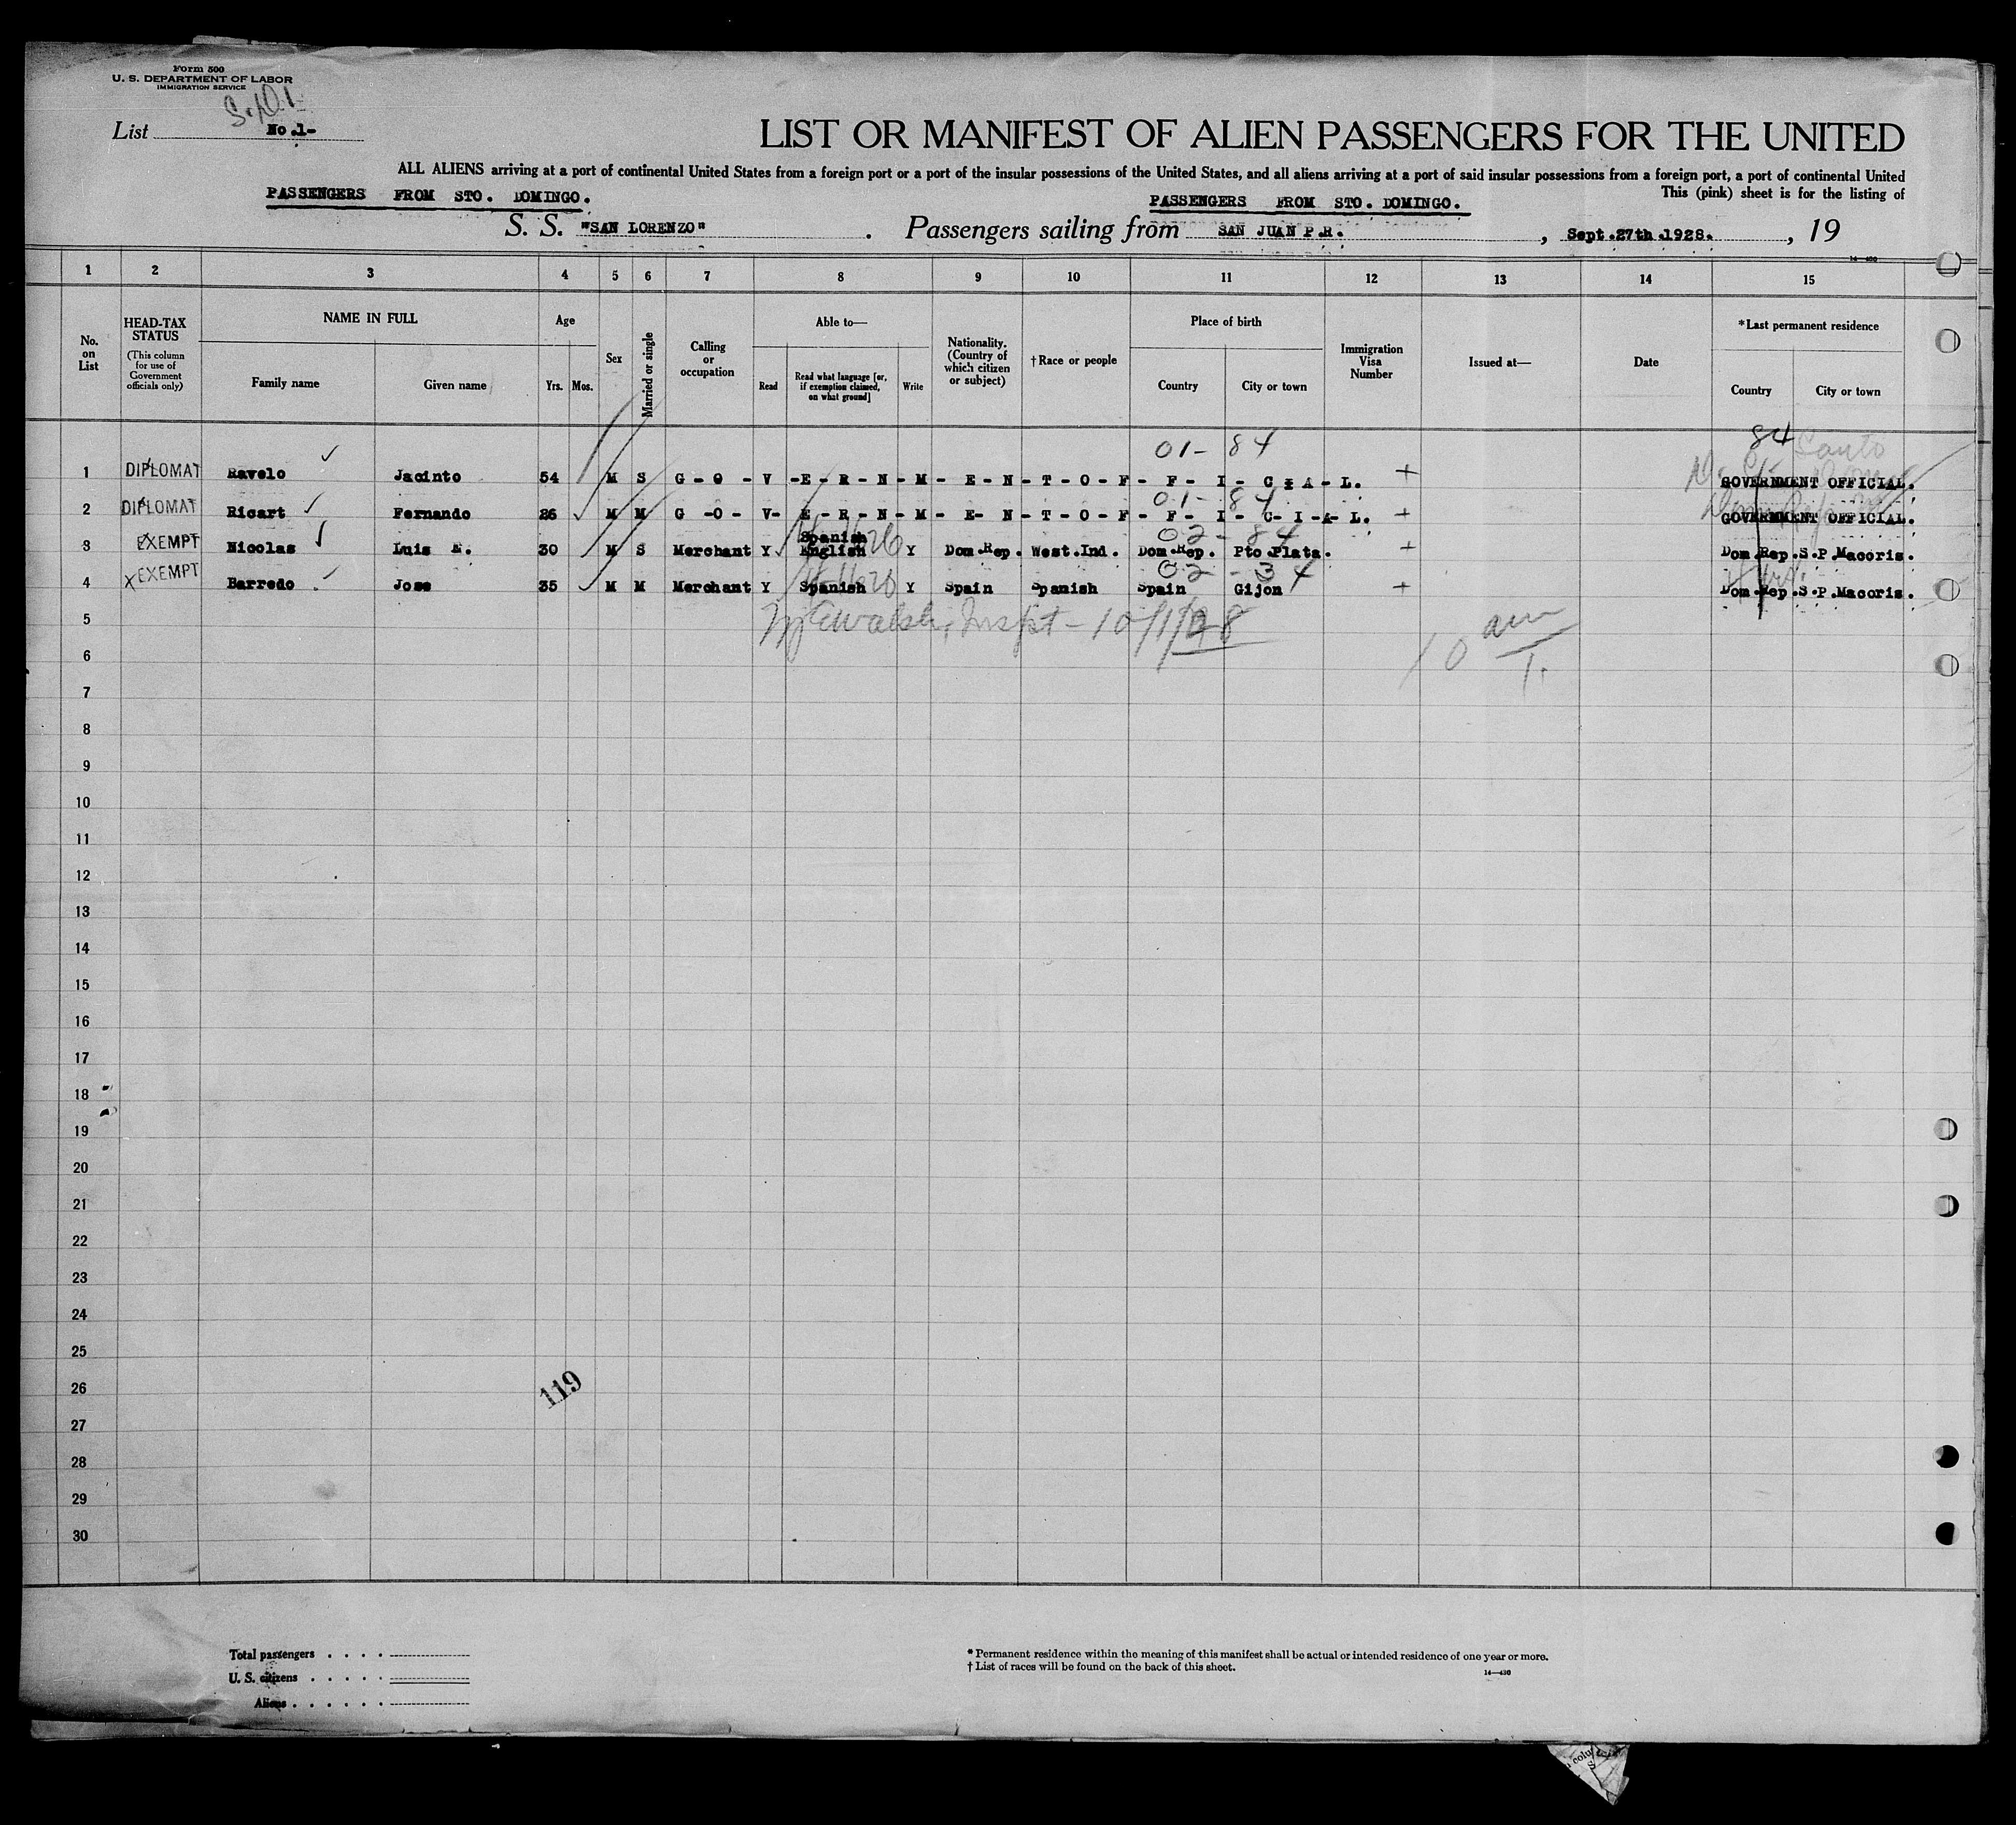 Form 500
U. S. DEPARTMENT OF LABOR
IMMIGRATION SERVICE
List No.1-
LIST OR MANIFEST OF ALIEN PASSENGERS FOR THE UNITED
ALL ALIENS arriving at a port of continental United States from a foreign port or a port of the insular possessions of the United States, and all aliens arriving at a port of said insular possessions from a foreign port, a port of continental United
This (pink) sheet is for the listing of
PASSENGERS FROM STO. DOMINGO. PASSENGERS FROM STO. DOMINGO.
S. S. "SAN LORENZO" . Passengers sailing from SAN JUAN P.R. , Sept.27th.1928. , 19
14—430
1 2 3 4 5 6 7 8 9 10 11 12 13 14 15
No. on List
HEAD-TAX STATUS
(This column for use of Government officials only)
NAME IN FULL
Family name Given name
Age
Yrs. Mos.
Sex
Married or single
Calling or occupation
Able to—
Read
Read what language [or, if exemption claimed, on what ground]
Write
Nationality. (Country of which citizen or subject)
†Race or people
Place of birth
Country City or town
Immigration Visa Number
Issued at—
Date
*Last permanent residence
Country City or town
01- 84 84 Santo
1 DIPLOMAT Ravelo Jacinto 54 M S G - O - V -E - R - N - M - E - N - T - O - F - F - I - C I A - L. + GOVERNMENT OFFICIAL.
01- 84
2 DIPLOMAT Ricart Fernando 26 M M G -O - V- E - R - N - M - E- N - T - O - F - F - I - C - I -A- L. + GOVERNMENT OFFICIAL.
Spanish 02 - 84
3 EXEMPT Nicolas Luis E. 30 M S Merchant Y English Y Dom.Rep. West.Ind. Dom.Rep. Pto Plata. + Dom.Rep.S.P.Macoris.
02 - 34
4 EXEMPT Barredo Jose 35 M M Merchant Y Spanish Y Spain Spanish Spain Gijon + Dom.Rep.S.P.Macoris.
5 Walsh, Inspt - 10/1/28
6 10 am
7
8
9
10
11
12
13
14
15
16
17
18
19
20
21
22
23
24
25
26 119
27
28
29
30
Total passengers . . . .
U. S. citizens . . . . .
Aliens . . . . . .
* Permanent residence within the meaning of this manifest shall be actual or intended residence of one year or more.
† List of races will be found on the back of this sheet. 14—430